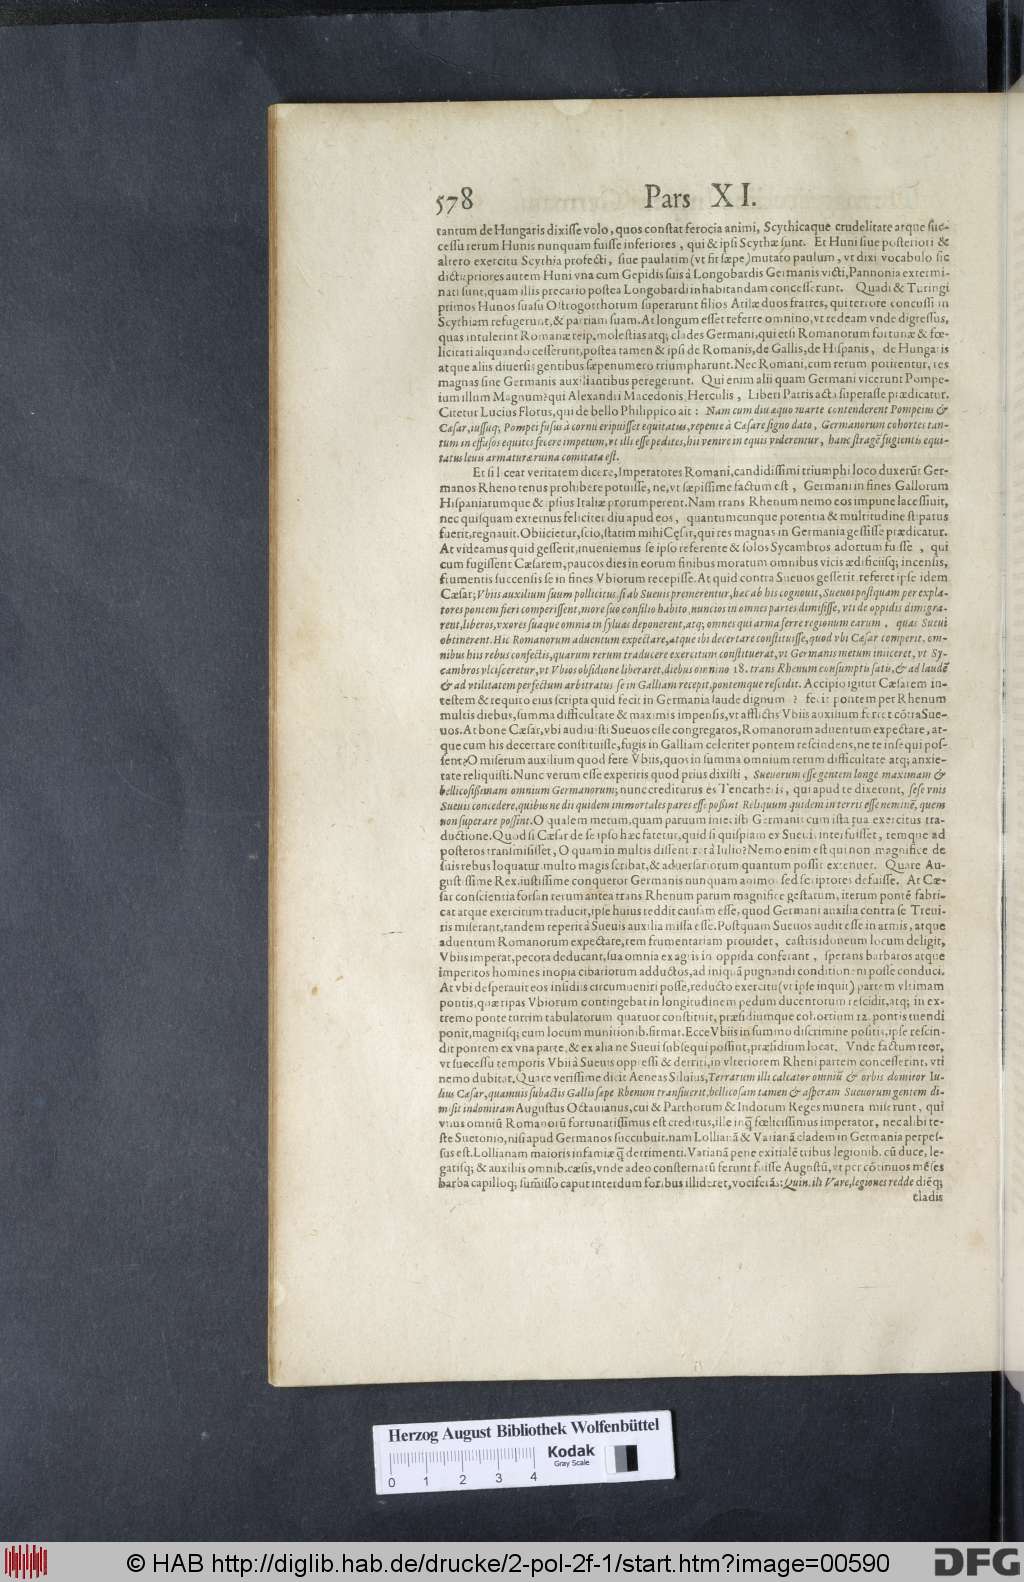 578 Pars XI.
tantum de Hungaris dixisse volo, quos constat ferocia animi, Scythicaque crudelitate atque suc-
cessu rerum Hunis nunquam fuisse inferiores, qui & ipsi Scythæ sunt. Et Huni siue posteriori &
altero exercitu Scythia profecti, siue paulatim (vt fit sæpe) mutato paulum, vt dixi vocabulo sic
dicti: priores autem Huni vna cum Gepidis suis à Longobardis Germanis victi, Pannonia extermi-
nati sunt, quam illis precario postea Longobardi in habitandam concesserunt. Quadi & Turingi
primos Hunos suasu Ostrogotthorum superarunt filios Atilæ duos fratres, qui terrore concussi in
Scythiam refugerunt, & patriam suam. At longum esset referre omnino, vt redeam vnde digressus,
quas intulerint Romanæ reip. molestias atq; clades Germani, qui etsi Romanorum fortunæ & fœ-
licitati aliquando cesserunt, postea tamen & ipsi de Romanis, de Gallis, de Hispanis, de Hungaris
atque aliis diuersis gentibus sæpenumero triumpharunt. Nec Romani, cum rerum potirentur, res
magnas sine Germanis auxiliantibus peregerunt. Qui enim alii quam Germani vicerunt Pompe-
ium illum Magnum? qui Alexandri Macedonis, Herculis, Liberi Patris acta superasse prædicatur.
Citetur Lucius Florus, qui de bello Philippico ait: Nam cum diu æquo marte contenderent Pompeius &
Cæsar, iussuq; Pompei fusus à cornu eripuisset equitatus, repente à Cæsare signo dato, Germanorum cohortes tan-
tum in effusos equites fecere impetum, vt illi esse pedites, hii venire in equis viderentur, hanc stragē fugientis equi-
tatus leuis armaturæ ruina comitata est.
Et si liceat veritatem dicere, Imperatores Romani, candidissimi triumphi loco duxerūt Ger-
manos Rheno tenus prohibere potuisse, ne, vt sæpissime factum est, Germani in fines Gallorum
Hispaniarumque & ipsius Italiæ prorumperent. Nam trans Rhenum nemo eos impune lacessiuit,
nec quisquam externus feliciter diu apud eos, quantumcunque potentia & multitudine stipatus
fuerit, regnauit. Obiicietur, scio, statim mihi Cęsar, qui res magnas in Germania gessisse prædicatur.
At videamus quid gesserit, inueniemus se ipso referente & solos Sycambros adortum fuisse, qui
cum fugissent Cæsarem, paucos dies in eorum finibus moratum omnibus vicis ædificiisq; incensis,
frumentis succensis se in fines Vbiorum recepisse. At quid contra Sueuos gesserit, referet ipse idem
Cæsar; Vbiis auxilium suum pollicitus, si ab Sueuis premerentur, hæc ab his cognouit, Sueuos postquam per explo-
ratores pontem fieri comperissent, more suo consilio habito, nuncios in omnes partes dimisisse, vti de oppidis dimigra-
rent, liberos, vxores suaque omnia in syluas deponerent, atq; omnes qui arma ferre regionum earum, quas Sueui
obtinerent. Hic Romanorum aduentum expectare, atque ibi decertare constituisse, quod vbi Cæsar comperit, om-
nibus hiis rebus confectis, quarum rerum traducere exercitum constituerat, vt Germanis metum iniiceret, vt Sy-
cambros vlcisceretur, vt Vbios obsidione liberaret, diebus omnino 18. trans Rhenum consumptis satis, & ad laudē
& ad vtilitatem perfectum arbitratus se in Galliam recepit, pontemque rescidit. Accipio igitur Cæsarem in
testem & requiro eius scripta quid fecit in Germania laude dignum? fecit pontem per Rhenum
multis diebus, summa difficultate & maximis impensis, vt afflictis Vbiis auxilium ferret cōtra Sue-
uos. At bone Cæsar, vbi audiuisti Sueuos esse congregatos, Romanorum aduentum expectare, at-
que cum his decertare constituisse, fugis in Galliam celeriter pontem rescindens, ne te insequi pos-
sent? O miserum auxilium quod fere Vbiis, quos in summa omnium rerum difficultate atq; anxie-
tate reliquisti. Nunc verum esse experiris quod prius dixisti, Sueuorum esse gentem longe maximam &
bellicosissimam omnium Germanorum; nunc crediturus es Tencatheris, qui apud te dixerunt, sese vnis
Sueuis concedere, quibus ne dii quidem immortales pares esse possint Reliquum quidem in terris esse neminē, quem
non superare possint. O qualem metum, quam paruum iniecisti Germanis cum ista tua exercitus tra-
ductione. Quod si Cæsar de se ipso hæc fatetur, quid si quispiam ex Sueuis interfuisset, remque ad
posteros transmisisset, O quam in multis dissentiret à Iulio? Nemo enim est qui non magnifice de
suis rebus loquatur, multo magis scribat, & aduersariorum quantum possit extenuet. Quare Au-
gustissime Rex, iustissime conqueror Germanis nunquam animos sed scriptores defuisse. At Cæ-
sar conscientia forsan rerum antea trans Rhenum parum magnifice gestarum, iterum pontē fabri-
cat atque exercitum traducit, ipse huius reddit causam esse, quod Germani auxilia contra se Treui-
ris miserant, tandem reperit à Sueuis auxilia missa esse. Postquam Sueuos audit esse in armis, atque
aduentum Romanorum expectare, rem frumentariam prouidet, castris idoneum locum deligit,
Vbiis imperat, pecora deducant, sua omnia ex agris in oppida conferant, sperans barbaros atque
imperitos homines inopia cibariorum adductos, ad iniquā pugnandi conditionem posse conduci.
At vbi desperauit eos insidiis circumueniri posse, reducto exercitu (vt ipse inquit) partem vltimam
pontis, quæ ripas Vbiorum contingebat in longitudinem pedum ducentorum rescidit, atq; in ex-
tremo ponte turrim tabulatorum quatuor constituit, præsidiumque cohortium 12. pontis tuendi
ponit, magnisq; eum locum munitionib. firmat. Ecce Vbiis in summo discrimine positis, ipse rescin-
dit pontem ex vna parte, & ex alia ne Sueui subsequi possint, præsidium locat. Vnde factum reor,
vt successu temporis Vbii à Sueuis oppressi & detriti, in vlteriorem Rheni partem concesserint, vti
nemo dubitat. Quare verissime dicit Aeneas Siluius, Terrarum illi calcator omniū & orbis domitor Iu-
lius Cæsar, quamuis subactis Gallis sæpe Rhenum transiuerit, bellicosam tamen & asperam Sueuorum gentem di-
misit indomitam Augustus Octauianus, cui & Parthorum & Indorum Reges munera miserunt, qui
vnus omniū Romanorū fortunatissimus est creditus, ille inq̄ fœlicissimus imperator, nec alibi te-
ste Suetonio, nisi apud Germanos succubuit. nam Lollianā & Varianā cladem in Germania perpes-
sus est. Lollianam maioris infamiæ q̄ detrimenti. Varianā pene exitialē tribus legionib. cū duce, le-
gatisq; & auxiliis omnib. cæsis, vnde adeo consternatū ferunt fuisse Augustū, vt per cōtinuos mēses
barba capilloq; summisso caput interdum foribus illideret, vociferās: Quintili Vare, legiones redde diēq;
cladis
Herzog August Bibliothek Wolfenbüttel
Kodak
Gray Scale
0 1 2 3 4
© HAB http://diglib.hab.de/drucke/2-pol-2f-1/start.htm?image=00590
DFG